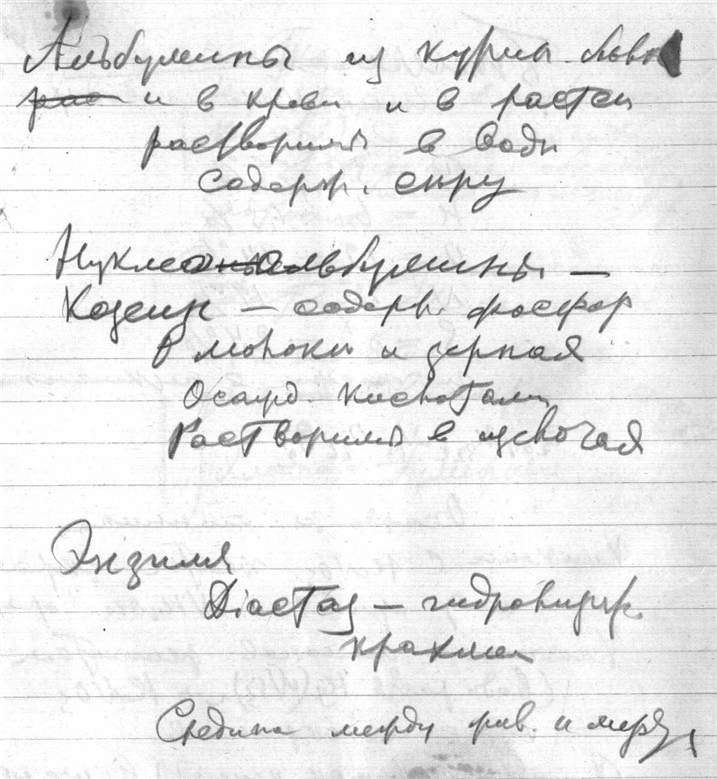 Альбумины из курин. белка
рас и в крови и в растен
растворимы в воде
Содерж. серу
Нуклеоальбумины —
Козеин — содерж. фосфор
в молоке и зернах
Осажд. кислотами
Растворимы в щелочах
Энзимы
Диастаз — гидролизир.
крахмал
Средина между рав. и